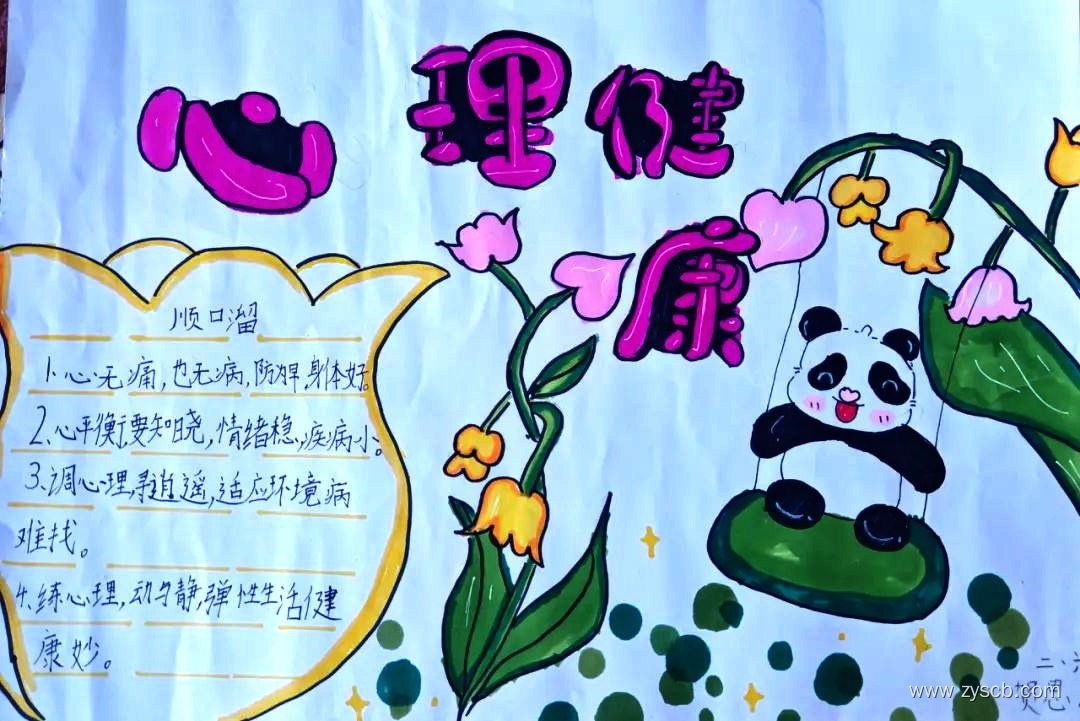 心理健
康
顺口溜
1.心无痛,也无病,防为早,身体好。
2.心平衡,要知晓,情绪稳,疾病小。
3.调心理,寻逍遥,适应环境病
难找。
4.练心理,动与静,弹性生活健
康妙。
www.zyscb.com